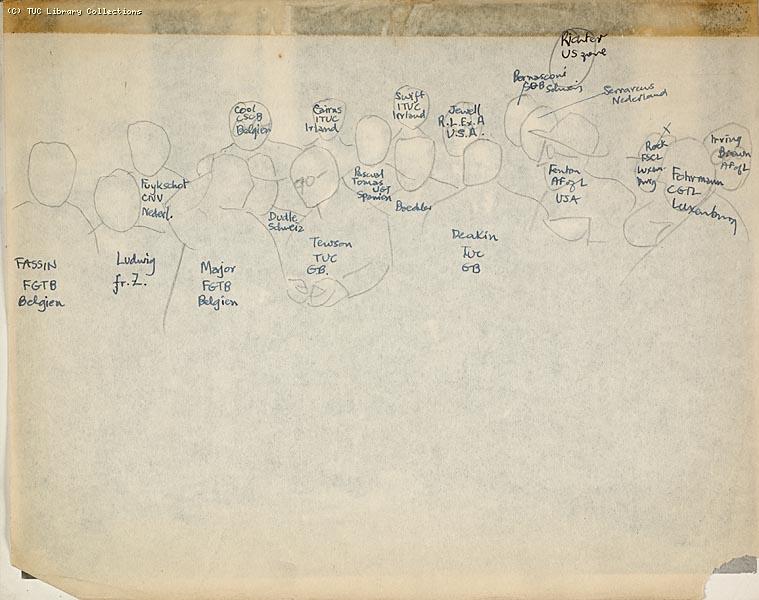 (C) TUC Library Collections
Richter
US zone
Bernasconi
SGB Schweiz
Serrarens
Nederland
Cool
CSCB
Belgien
Cairns
ITUC
Irland
Swift
ITUC
Irland
Jewell
R.L.Ex.A
U.S.A.
Irving
Brown
AFofL
Fuykschot
CNV
Nederl.
Pascual
Tomas
UGT
Spanien
Fenton
AFofL
USA
Fohrmann
CGTL
Luxemburg
Dudle
Schweiz
Tewson
TUC
GB.
Deakin
TUC
GB
FASSIN
FGTB
Belgien
Ludwig
fr. Z.
Major
FGTB
Belgien